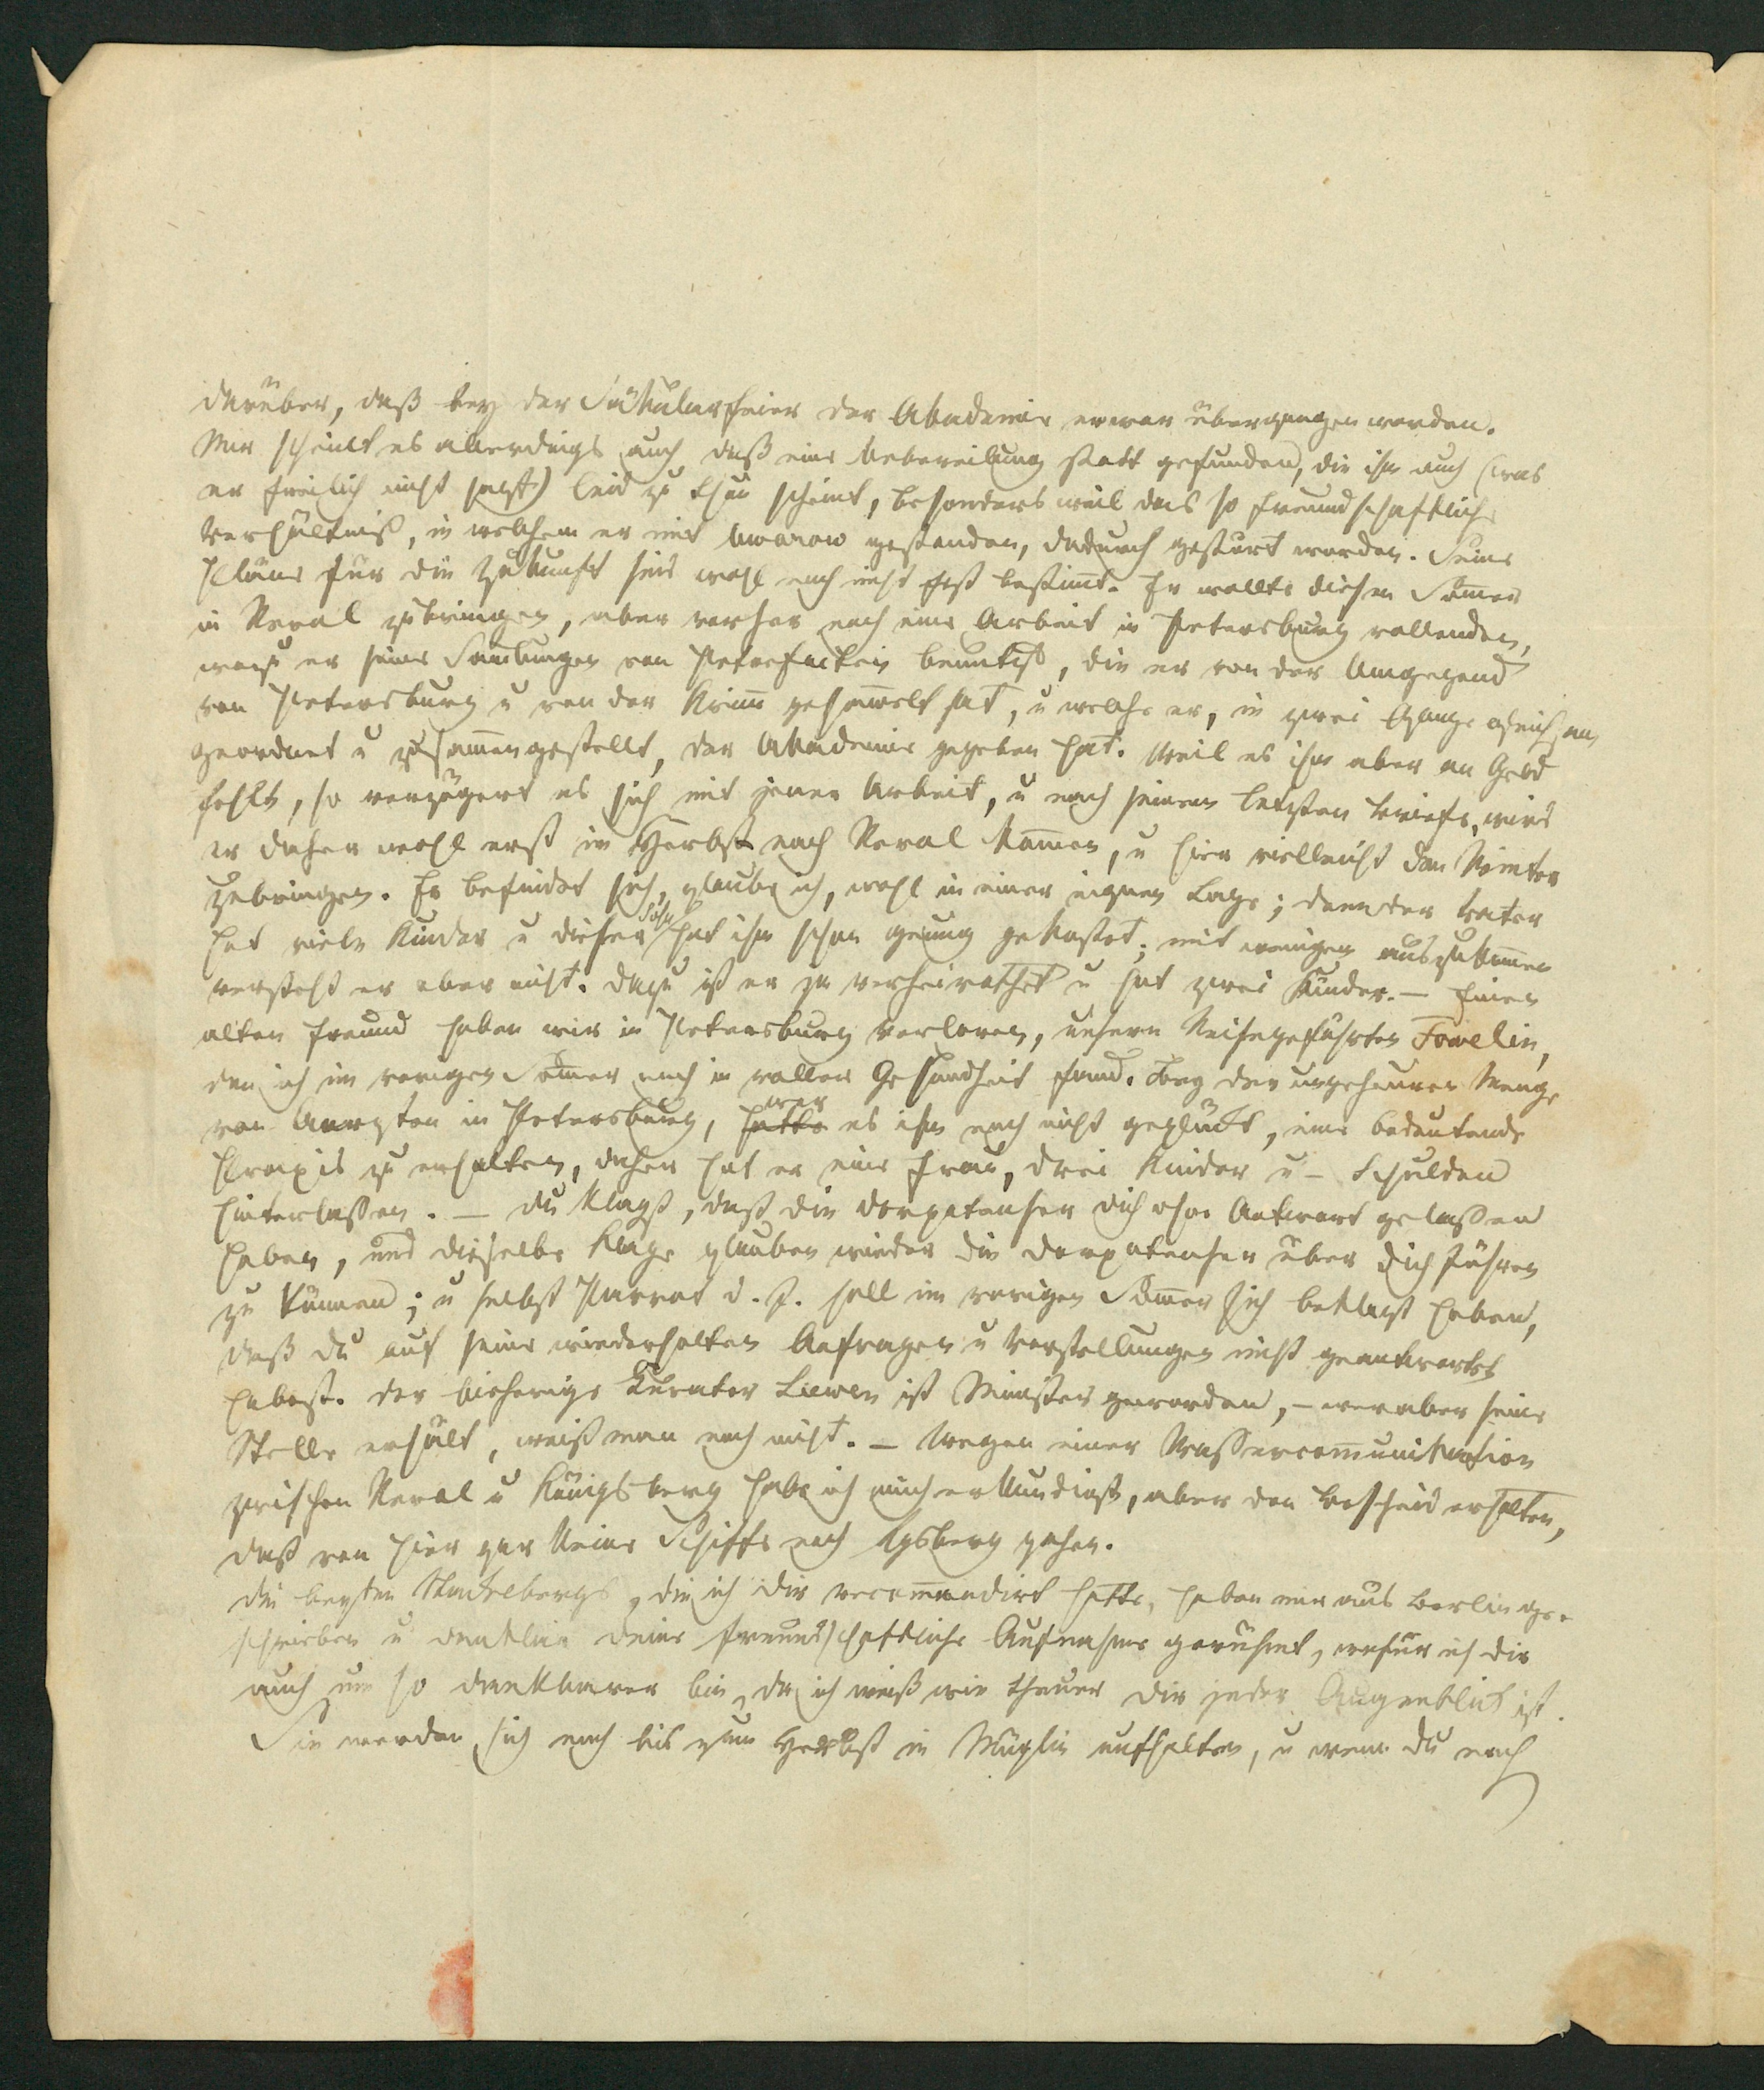 darüber, daß bey der Säkularfeier der Akademie er war übergangen worden.
Mir scheint es allerdings auch, daß eine Uebereilung statt gefunden, die ihm auch (was
er freilich nicht sagt) leid zu thun scheint, besonders weil das so freundschaftliche
Verhältniß, in welchem er mit Uwarow gestanden, dadurch gestört worden. Seine
Pläne für die Zukunft sind wohl noch nicht fest bestimt. Er wollte diesen Som̄er
in Reval zubringen, aber vorher noch eine Arbeit in Petersburg vollenden,
wozu er seine Samlungen von Petrefacten benutzt, die er von der Umgegend
von Petersburg u von der Krim̄ gesam̄elt hat, u welche er, in zwei
geordnet u zusam̄engestellt, der Akademie gegeben hat. Weil es ihm aber an Geld
fehlt, so verzögert es sich mit jener Arbeit, u nach seinem letzten Briefe, wird
er daher wohl erst im Herbst nach Reval kom̄en, u hier vielleicht den Winter
zubringen. Er befindet sich, glaube ich, wohl in einer eignen Lage; denn der Vater
hat viele Kinder u dieser Sohn hat ihm schon genug gekostet; mit wenigem auszukom̄en
versteht er aber nicht. Dazu ist er ja verheirathet u hat zwei Kinder. – Einen
alten Freund haben wir in Petersburg verloren, unsern Reisegefährten Fowelin,
den ich im vorigen Som̄er noch in voller Gesundheit fand. Bey der ungeheuren Menge
von Aerzten in Petersburg, hatte war es ihm noch nicht geglückt, eine bedeutende
Praxis zu erhalten, daher hat er eine Frau, drei Kinder u – Schulden
hinterlassen. – Du klagst, daß die Dorpatenser dich ohne Antwort gelassen
haben, und dieselbe Klage glauben wieder die Dorpatenser über dich führen
zu können; u selbst Parrot d. J. soll im vorigen Som̄er sich beklagt haben,
daß du auf seine wiederholten Anfragen u Vorstellungen nicht geantwortet
habest. Der bisherige Kurator Liewen ist Minister geworden, – wer aber seine
Stelle erhält, weiß man noch nicht. – Wegen einer Wassercom̄unikation
zwischen Reval u Königsberg habe ich mich erkundigt, aber den Bescheid erhalten,
daß von hier gar keine Schiffe nach Kgsberg gehen.
Die beyden Stackelbergs, die ich dir recom̄andirt hatte, haben mir aus Berlin ge-
schrieben u dankbar deine freundschaftliche Aufnahme gerühmt, wofür ich dir
auch um so dankbarer bin, da ich weiß wie theuer dir jeder Augenblick ist.
Sie werden sich noch bis zum Herbst in Möglin aufhalten, u wenn du nach